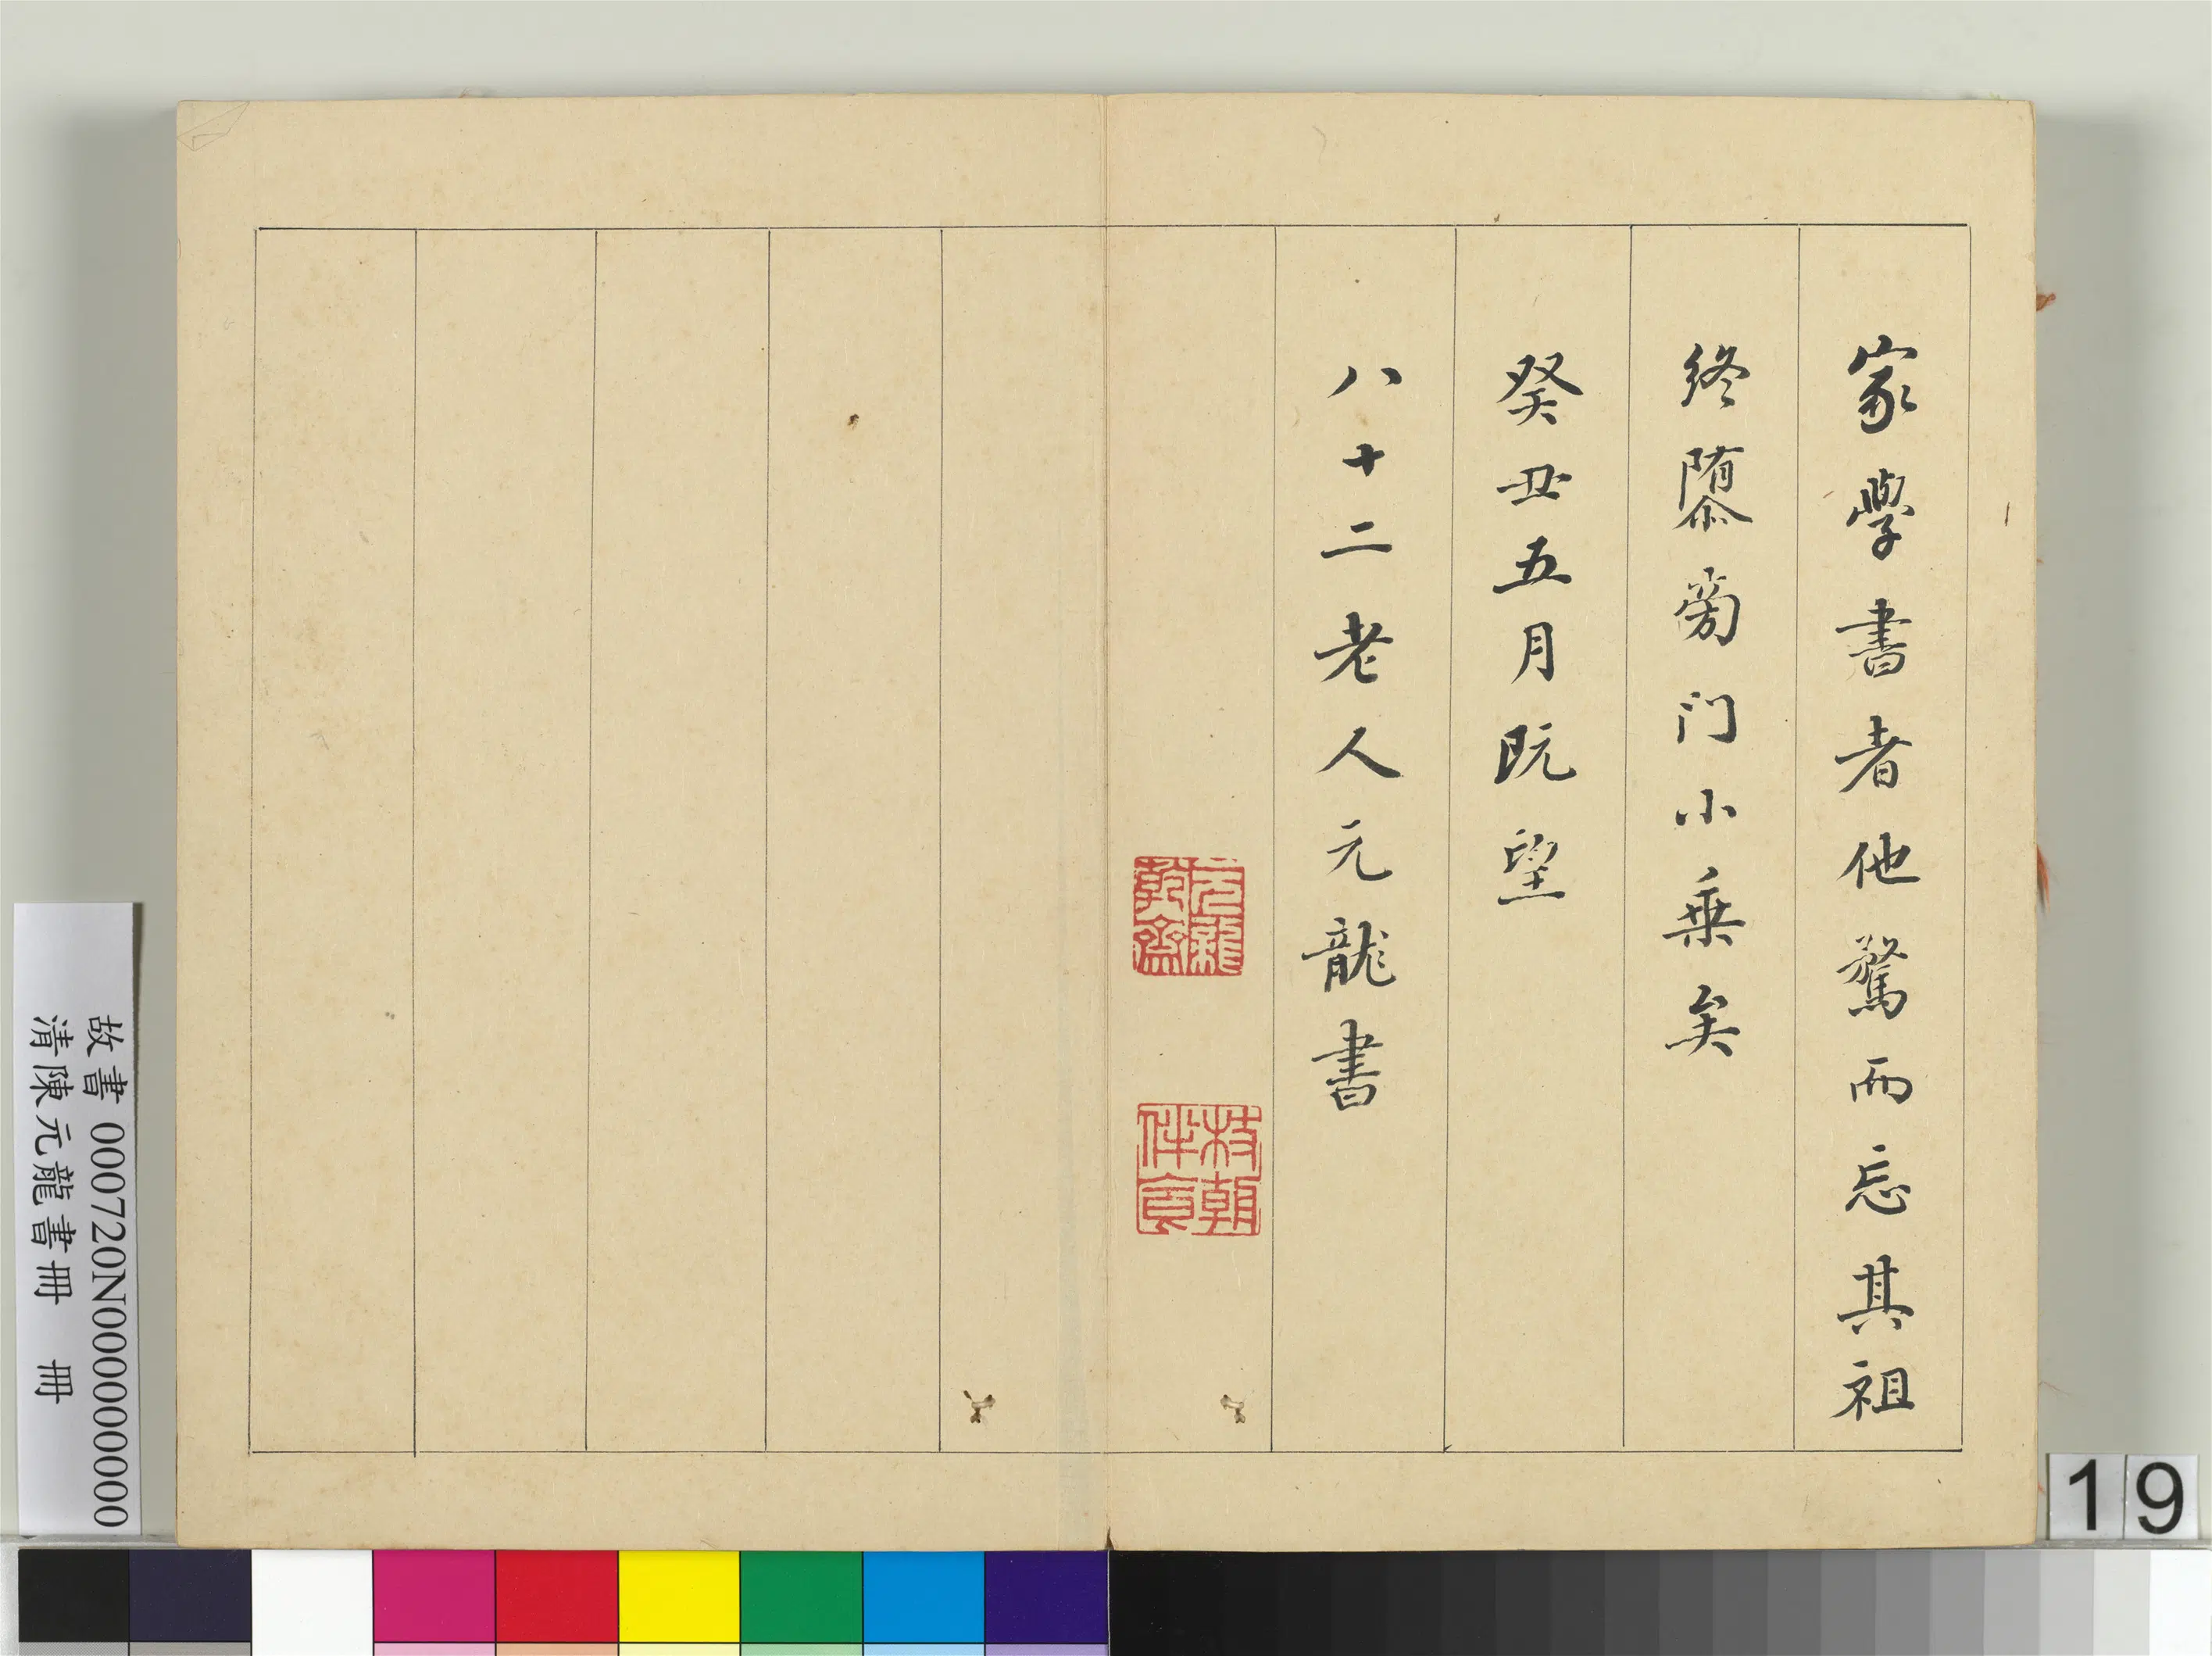 家學書者他騖而忘其祖
終隳旁门小乗矣
癸丑五月既望
八十二老人元龍書
元龍
乾齋
杖朝
伴食
故書 000720N000000000
清陳元龍書冊 冊
19